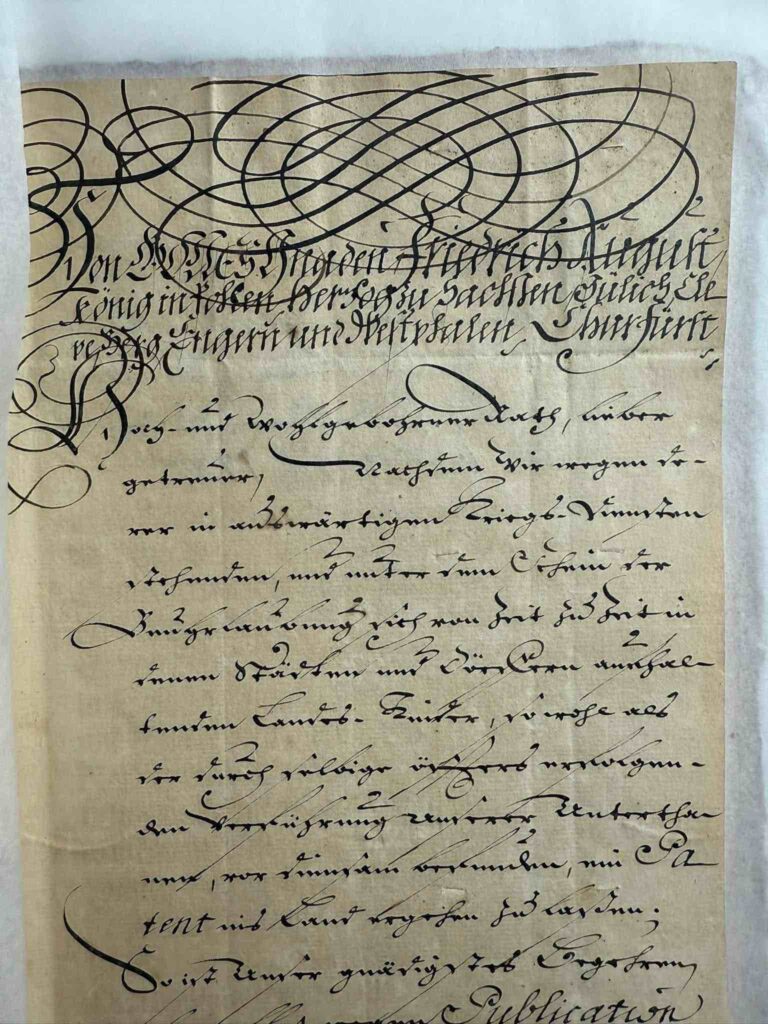 Von GOTTES Gnaden Friedrich August,
König in Pohlen Hertzog zu Sachsen, Jülich, Cle
ve, Berg, Engern und Westphalen, Churfürst
Hoch- und Wohlgebohrner Rath, lieber
getreuer, Nachdem Wir wegen de-
rer in auswärtigen Kriegs-Diensten
stehenden, und unter dem Schein der
Beuhrlaubung sich von Zeit zu Zeit in
denen Städten und Dörffern auffhal-
tenden Landes-Kinder, so wohl als
der durch selbige öffters erfolgen-
den Verführung Unserer Untertha-
nen, vor diensam befunden, ein Pa
tent ins Land ergehen zu laßen;
So ist Unser gnädigstes Begehren,
Publication